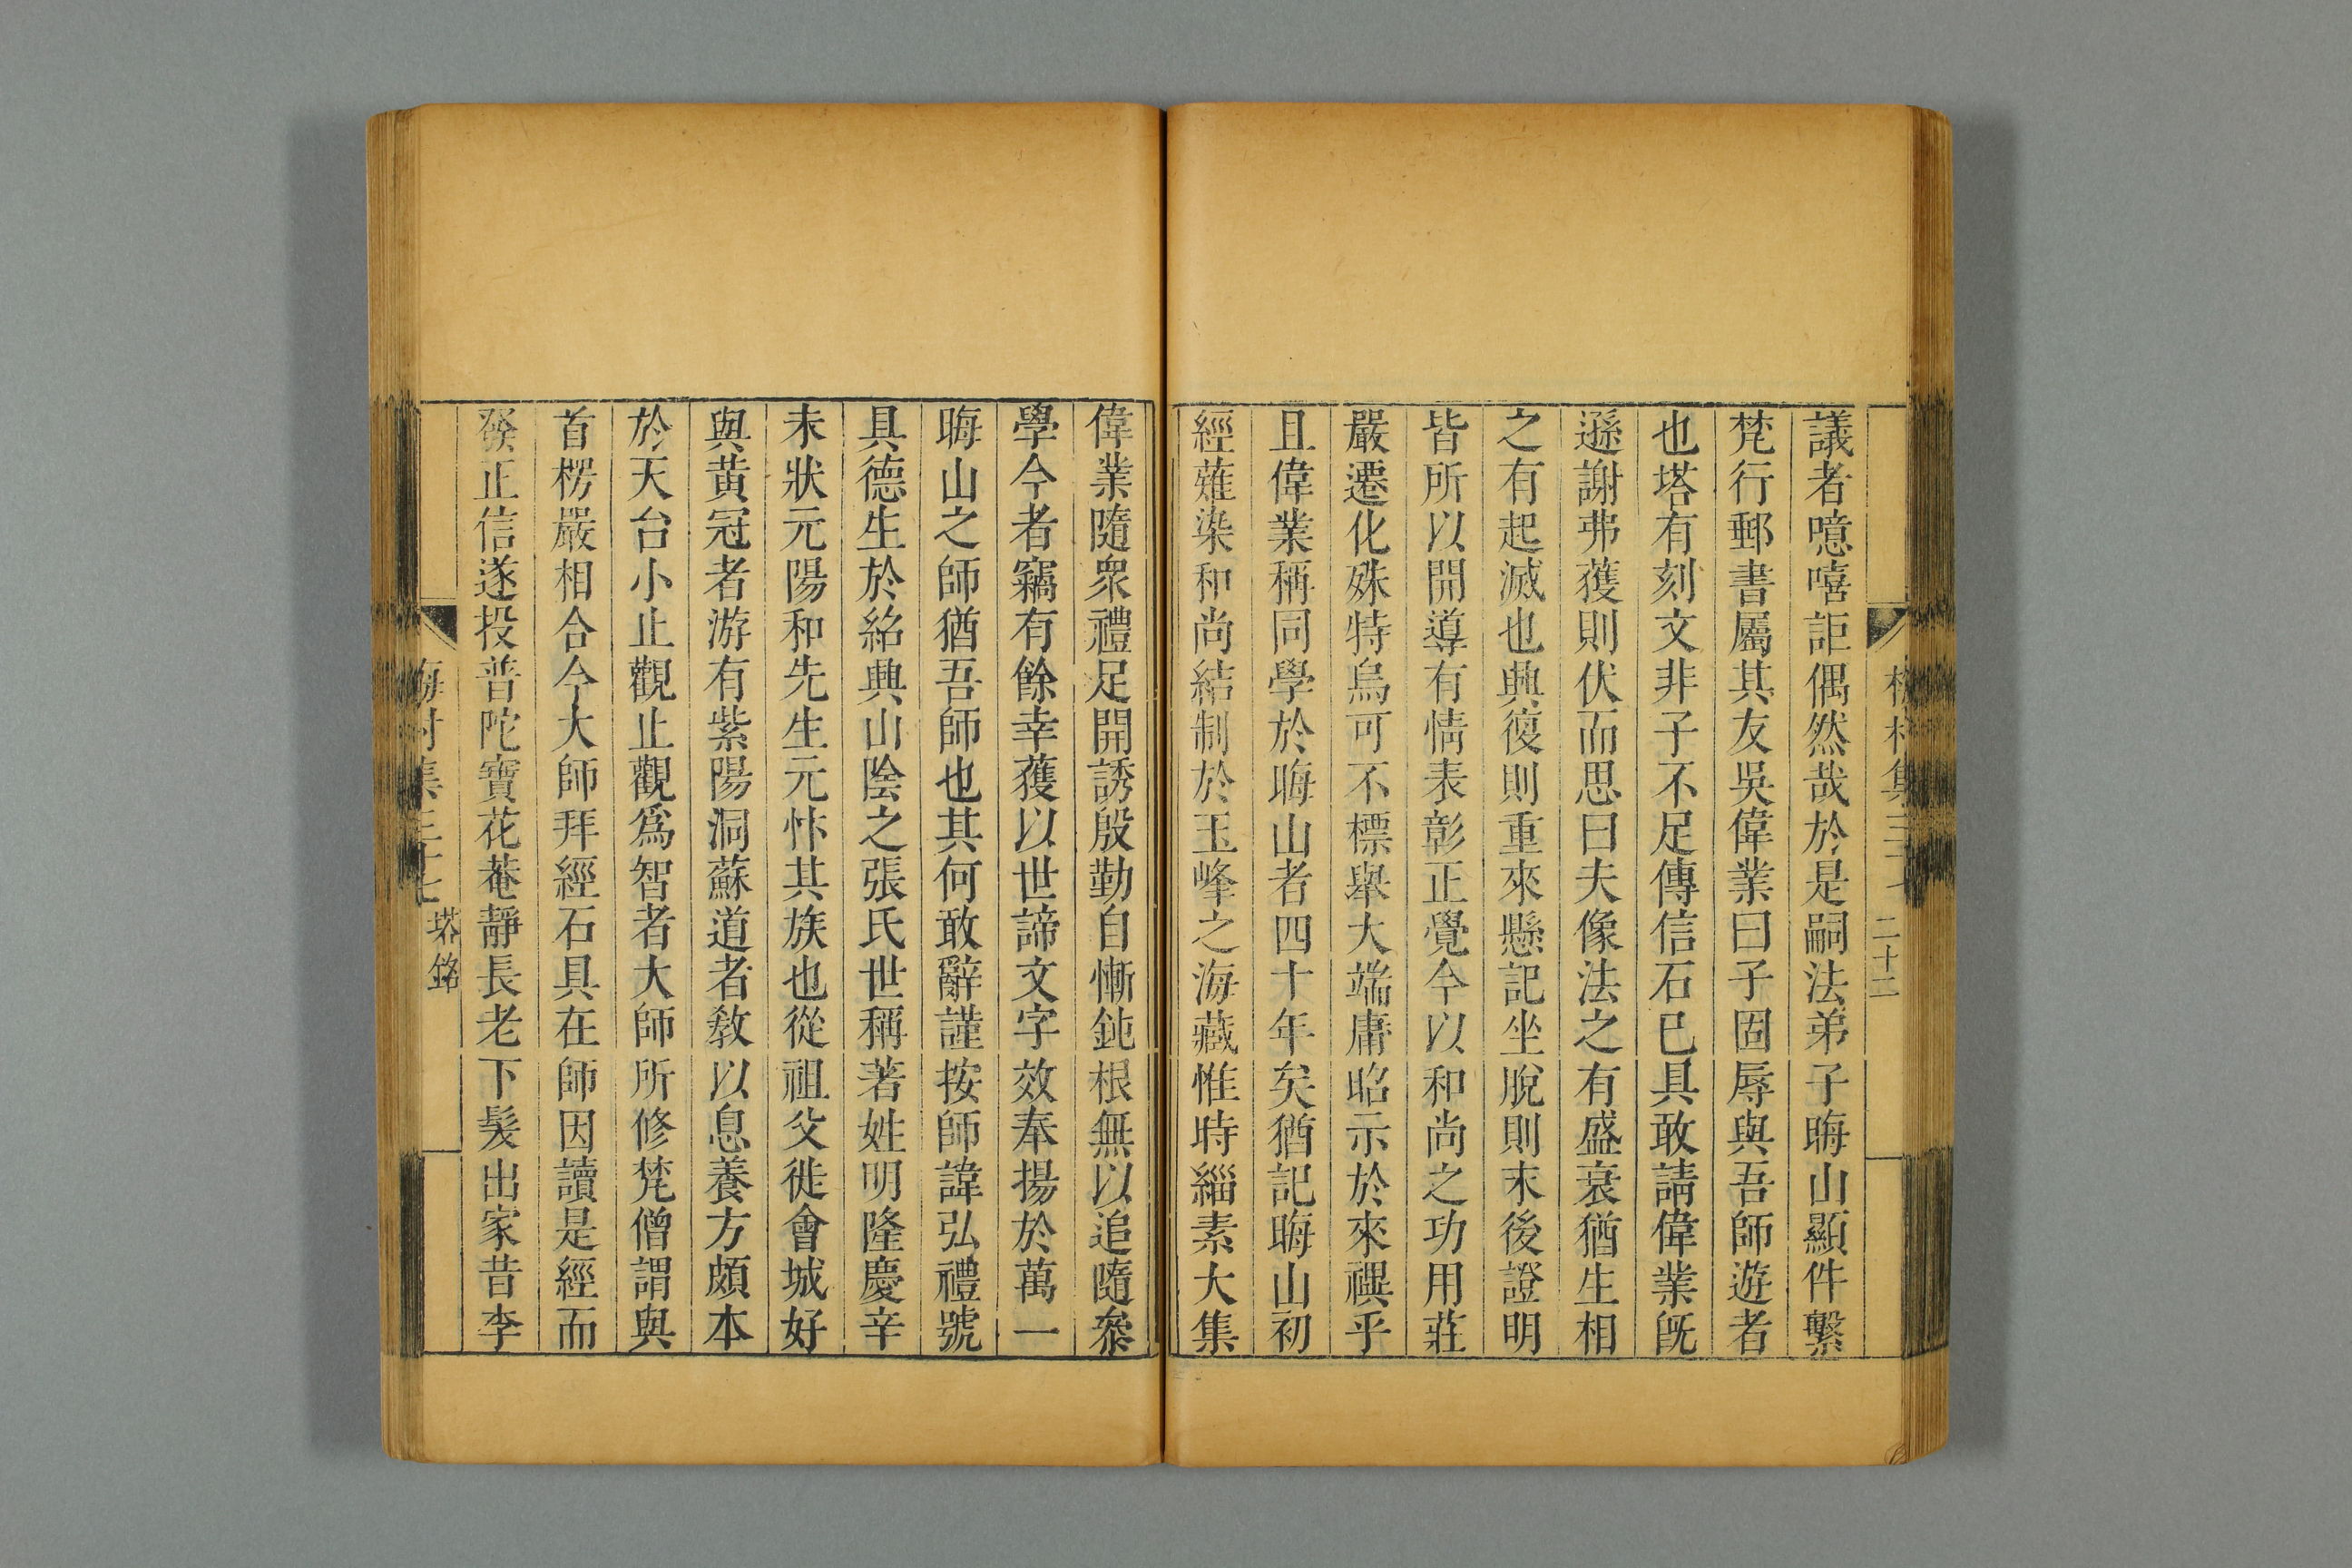 議者噫嘻詎偶然哉於是嗣法弟子晦山顯件繫
梵行郵書屬其友吳偉業曰子固辱與吾師遊者
也塔有刻文非子不足傳信石已具敢請偉業旣
遜謝弗獲則伏而思曰夫像法之有盛衰猶生相
之有起滅也興復則重來懸記坐脫則末後證明
皆所以開導有情表彰正覺今以和尚之功用莊
嚴遷化殊特烏可不標舉大端庸昭示於來禩乎
且偉業稱同學於晦山者四十年矣猶記晦山初
經薙染和尚結制於玉峰之海藏惟時緇素大集
二十二
偉業隨衆禮足開誘殷勤自慚鈍根無以追隨叅
學今者竊有餘幸獲以世諦文字效奉揚於萬一
晦山之師猶吾師也其何敢辭謹按師諱弘禮號
具德生於紹興山陰之張氏世稱著姓明隆慶辛
未狀元陽和先生元忭其族也從祖父徙會城好
與黃冠者游有紫陽洞蘇道者敎以息養方頗本
於天台小止觀止觀爲智者大師所修梵僧謂與
首楞嚴相合今大師拜經石具在師因讀是經而
發正信遂投普陀寶花菴靜長老下髮出家昔李
塔銘